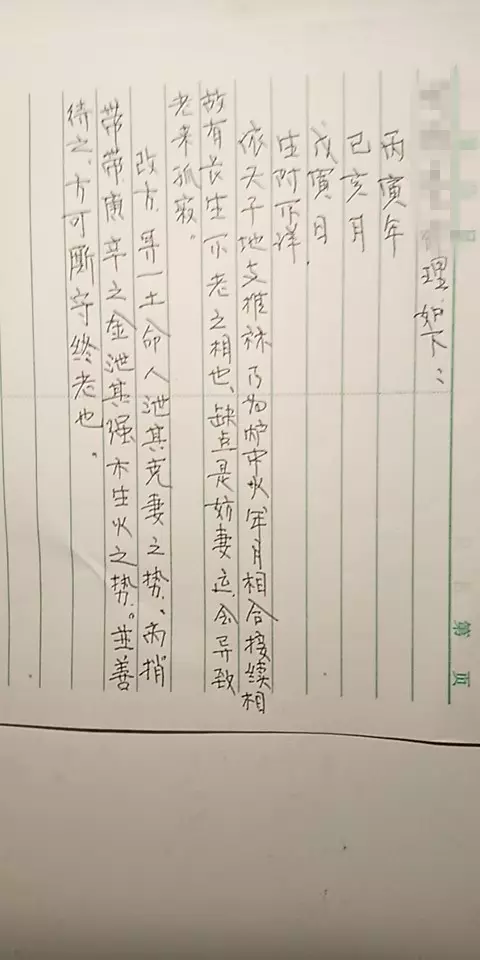 第 页
理如下：
丙寅年
已亥月
戊寅日
生时不详.
依天干地支推林乃为炉中火年月相合接续相
故有长生不老之相也、缺点是妨妻运、会导致
老来孤寂。
改方、寻一土命人泄其克妻之势、两捎
带带庚辛之金泄其强木生火之势。並善
待之、方可断守终老也。